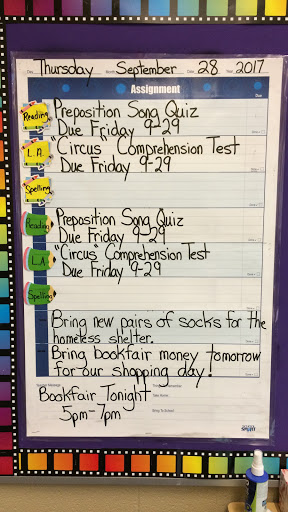 Day Thursday Month September Date 28 Year 2017
Assignment
Due
Reading
Preposition Song Quiz
Due Friday 9-29
L.A.
"Circus" Comprehension Test
Due Friday 9-29
Spelling
Reading
Preposition Song Quiz
Due Friday 9-29
L.A.
"Circus" Comprehension Test
Due Friday 9-29
Spelling
Bring new pairs of socks for the
homeless shelter.
Bring bookfair money tomorrow
for our shopping day!
Bookfair Tonight
5pm-7pm
Take Home
Bring To School